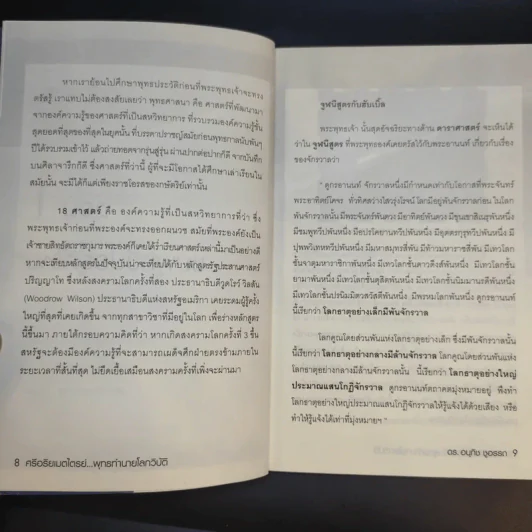 หากเราย้อนไปศึกษาพุทธประวัติก่อนที่พระพุทธเจ้าจะทรง
ตรัสรู้ เราแทบไม่ต้องสงสัยเลยว่า พุทธศาสนา คือ ศาสตร์ที่พัฒนามา
จากองค์ความรู้ของศาสตร์ที่เป็นสหวิทยาการ ที่รวบรวมองค์ความรู้ชั้น
สุดยอดที่สุดของที่สุดในยุคนั้น ที่บรรดาปราชญ์สมัยก่อนพุทธกาลนับพันๆ
ปีได้รวบรวมเข้าไว้ แล้วถ่ายทอดจากรุ่นสู่รุ่น ผ่านปากต่อปากก็ดี จากบันทึก
บนศิลาจารึกก็ดี ซึ่งศาสตร์ที่ว่านี้ ผู้ที่จะมีโอกาสได้ศึกษาเล่าเรียนใน
สมัยนั้น จะมีได้ก็แต่เพียงราชโอรสของกษัตริย์เท่านั้น
18 ศาสตร์ คือ องค์ความรู้ที่เป็นสหวิทยาการที่ว่า ซึ่ง
พระพุทธเจ้าก่อนที่พระองค์จะทรงออกผนวช สมัยที่พระองค์ยังเป็น
เจ้าชายสิทธัตถราชกุมาร พระองค์ก็เคยได้ร่ำเรียนศาสตร์เหล่านี้มาเป็นอย่างดี
หากจะเทียบหลักสูตรในปัจจุบันน่าจะเทียบได้กับหลักสูตรรัฐประสานศาสตร์
ปริญญาโท ซึ่งหลังสงครามโลกครั้งที่สอง ประธานาธิบดีวูดโรว์ วิลสัน
(Woodrow Wilson) ประธานาธิบดีแห่งสหรัฐอเมริกา เคยระดมผู้รู้ครั้ง
ใหญ่ที่สุดที่เคยเกิดขึ้น จากทุกสาขาวิชาที่มีอยู่ในโลก เพื่อร่างหลักสูตร
นี้ขึ้นมา ภายใต้กรอบความคิดที่ว่า หากเกิดสงครามโลกครั้งที่ 3 ขึ้น
สหรัฐจะต้องมีองค์ความรู้ที่จะสามารถเผด็จศึกฝ่ายตรงข้ามภายใน
ระยะเวลาที่สั้นที่สุด ไม่ยืดเยื้อเสมือนสงครามครั้งที่เพิ่งจะผ่านมา
8 ศรีอริยเมตไตรย์...พุทธทำนายโลกวิบัติ
จูฬนีสูตรกับฮับเบิ้ล
พระพุทธเจ้า นั้นสุดอัจฉริยะทางด้าน ดาราศาสตร์ จะเห็นได้
ว่าใน จูฬนีสูตร ที่พระพุทธองค์เคยตรัสไว้กับพระอานนท์ เกี่ยวกับเรื่อง
ของจักรวาลว่า
" ดูกรอานนท์ จักรวาลหนึ่งมีกำหนดเท่ากับโอกาสที่พระจันทร์
พระอาทิตย์โคจร ทั่วทิศสว่างไสวรุ่งโรจน์ โลกมีอยู่พันจักรวาลก่อน ในโลก
พันจักรวาลนั้น มีพระจันทร์พันดวง มีอาทิตย์พันดวง มีขุนเขาสิเนรุพันหนึ่ง
มีชมพูทวีปพันหนึ่ง มีอปรโคยานทวีปพันหนึ่ง มีอุตตรกุรุทวีปพันหนึ่ง มี
ปุพพวิเทหทวีปพันหนึ่ง มีมหาสมุทรสี่พัน มีท้าวมหาราชสี่พัน มีเทวโลก
ชั้นจาตุมหาราชิกาพันหนึ่ง มีเทวโลกชั้นดาวดึงส์พันหนึ่ง มีเทวโลกชั้น
ยามาพันหนึ่ง มีเทวโลกชั้นดุสิตพันหนึ่ง มีเทวโลกชั้นนิมมานรดีพันหนึ่ง
มีเทวโลกชั้นปรนิมมิตวสวัสดีพันหนึ่ง มีพรหมโลกพันหนึ่ง ดูกรอานนท์
นี้เรียกว่า โลกธาตุอย่างเล็กมีพันจักรวาล
โลกคูณโดยส่วนพันแห่งโลกธาตุอย่างเล็ก ซึ่งมีพันจักรวาลนั้น
นี้เรียกว่า โลกธาตุอย่างกลางมีล้านจักรวาล โลกคูณโดยส่วนพันแห่ง
โลกธาตุอย่างกลางมีล้านจักรวาลนั้น นี้เรียกว่า โลกธาตุอย่างใหญ่
ประมาณแสนโกฏิจักรวาล ดูกรอานนท์ตถาคตมุ่งหมายอยู่ พึงทำ
โลกธาตุอย่างใหญ่ประมาณแสนโกฏิจักรวาลให้รู้แจ้งได้ด้วยเสียง หรือ
ทำให้รู้แจ้งได้เท่าที่มุ่งหมายฯ "
ดร. อนุทิช ชูอรรถ 9